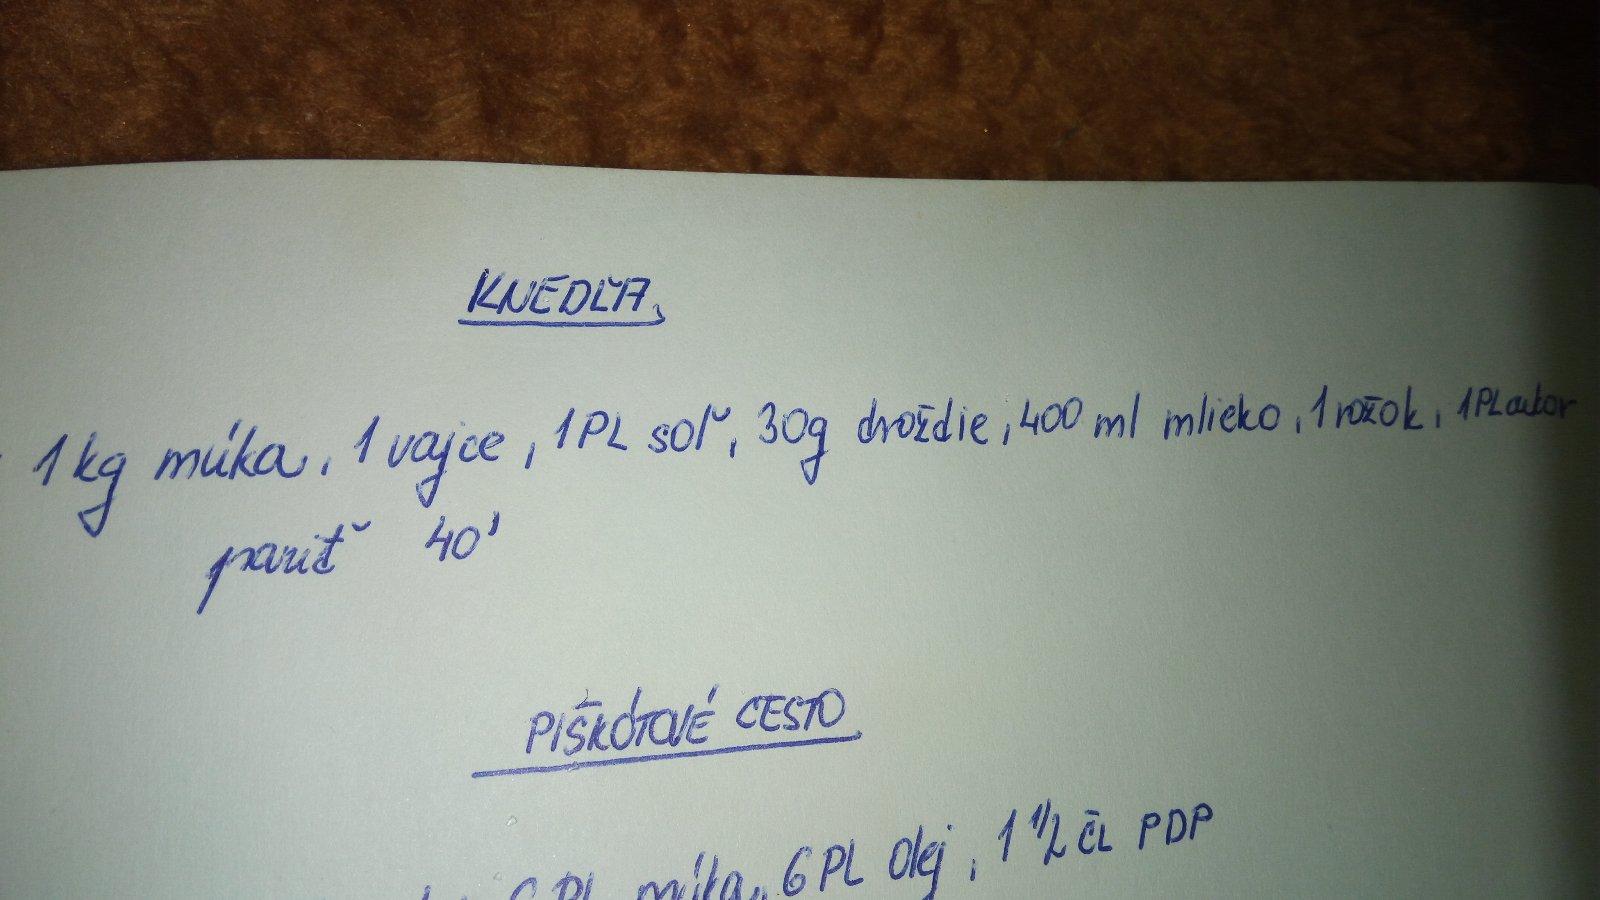 KNEDĽA
1 kg múka, 1 vajce, 1 PL soľ, 30g droždie, 400 ml mlieko, 1 rožok, 1 PL cukor
pariť 40'
PIŠKÓTOVÉ CESTO
PL múka, 6 PL olej, 1 1/2 ČL PDP